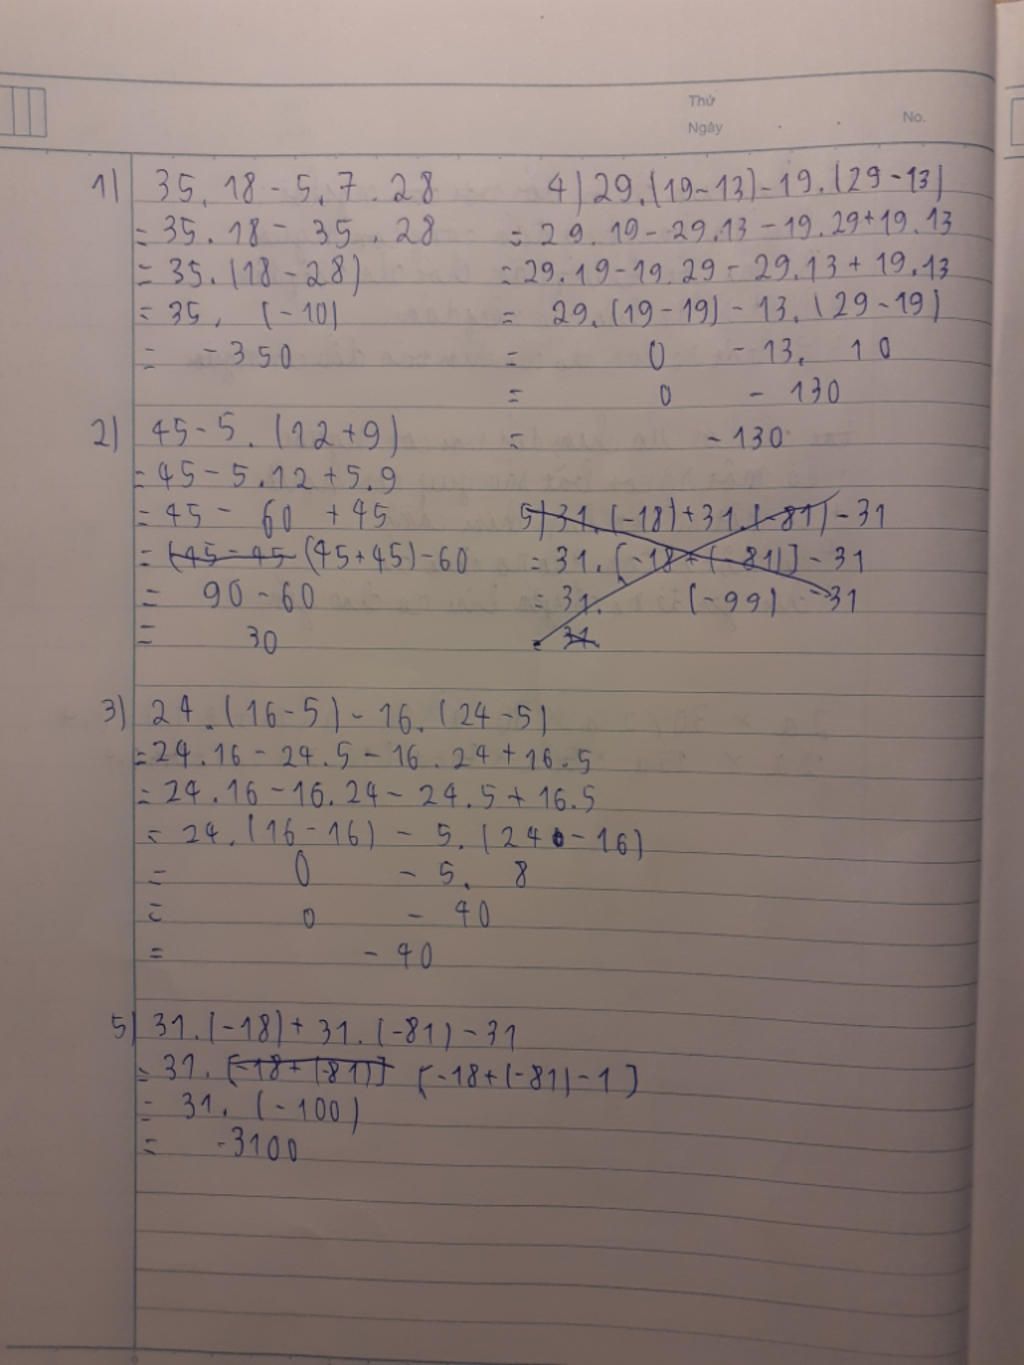 Thứ
Ngày
No.
1) 35.18 - 5.7.28
= 35.18 - 35.28
= 35.(18-28)
= 35. (-10)
= -350
2) 45-5.(12+9)
= 45-5.12+5.9
= 45 - 60 + 45
= (45-45 (45+45)-60
= 90-60
= 30
3) 24.(16-5)-16.(24-5)
= 24.16-24.5-16.24+16.5
= 24.16-16.24-24.5+16.5
= 24.(16-16) - 5.(24-16)
= 0 - 5. 8
= 0 - 40
= -40
4) 29.(19-13)-19.(29-13)
= 29.19-29.13-19.29+19.13
= 29.19-19.29-29.13+19.13
= 29.(19-19)-13.(29-19)
= 0 - 13. 10
= 0 - 130
= -130
5) 31.(-18)+31.(-81)-31
= 31.[-18+(-81)]-31
= 31. (-99) -31
= 31
5) 31.(-18)+31.(-81)-31
= 31.[-18+(-81)] [-18+(-81)-1]
= 31. (-100)
= -3100